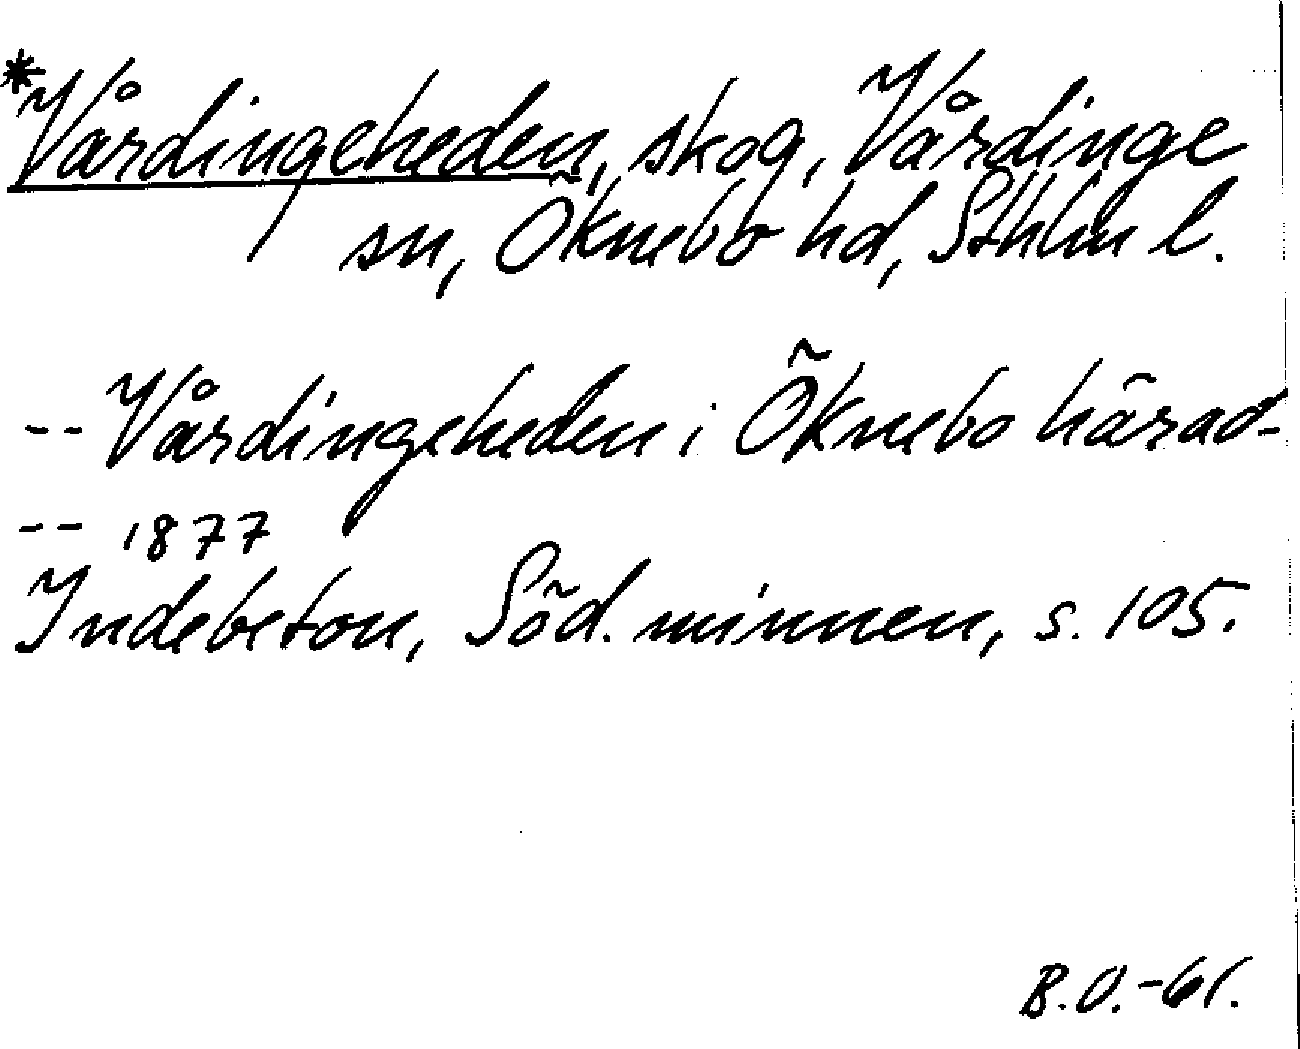 *Vårdingeheden, skog, Vårdinge
sn, Öknebo hd, Sthlm l.
-- Vårdingeheden i Öknebo härad-
-- 1877
Indebetou, Söd. minnen, s. 105.
B.O.-61.